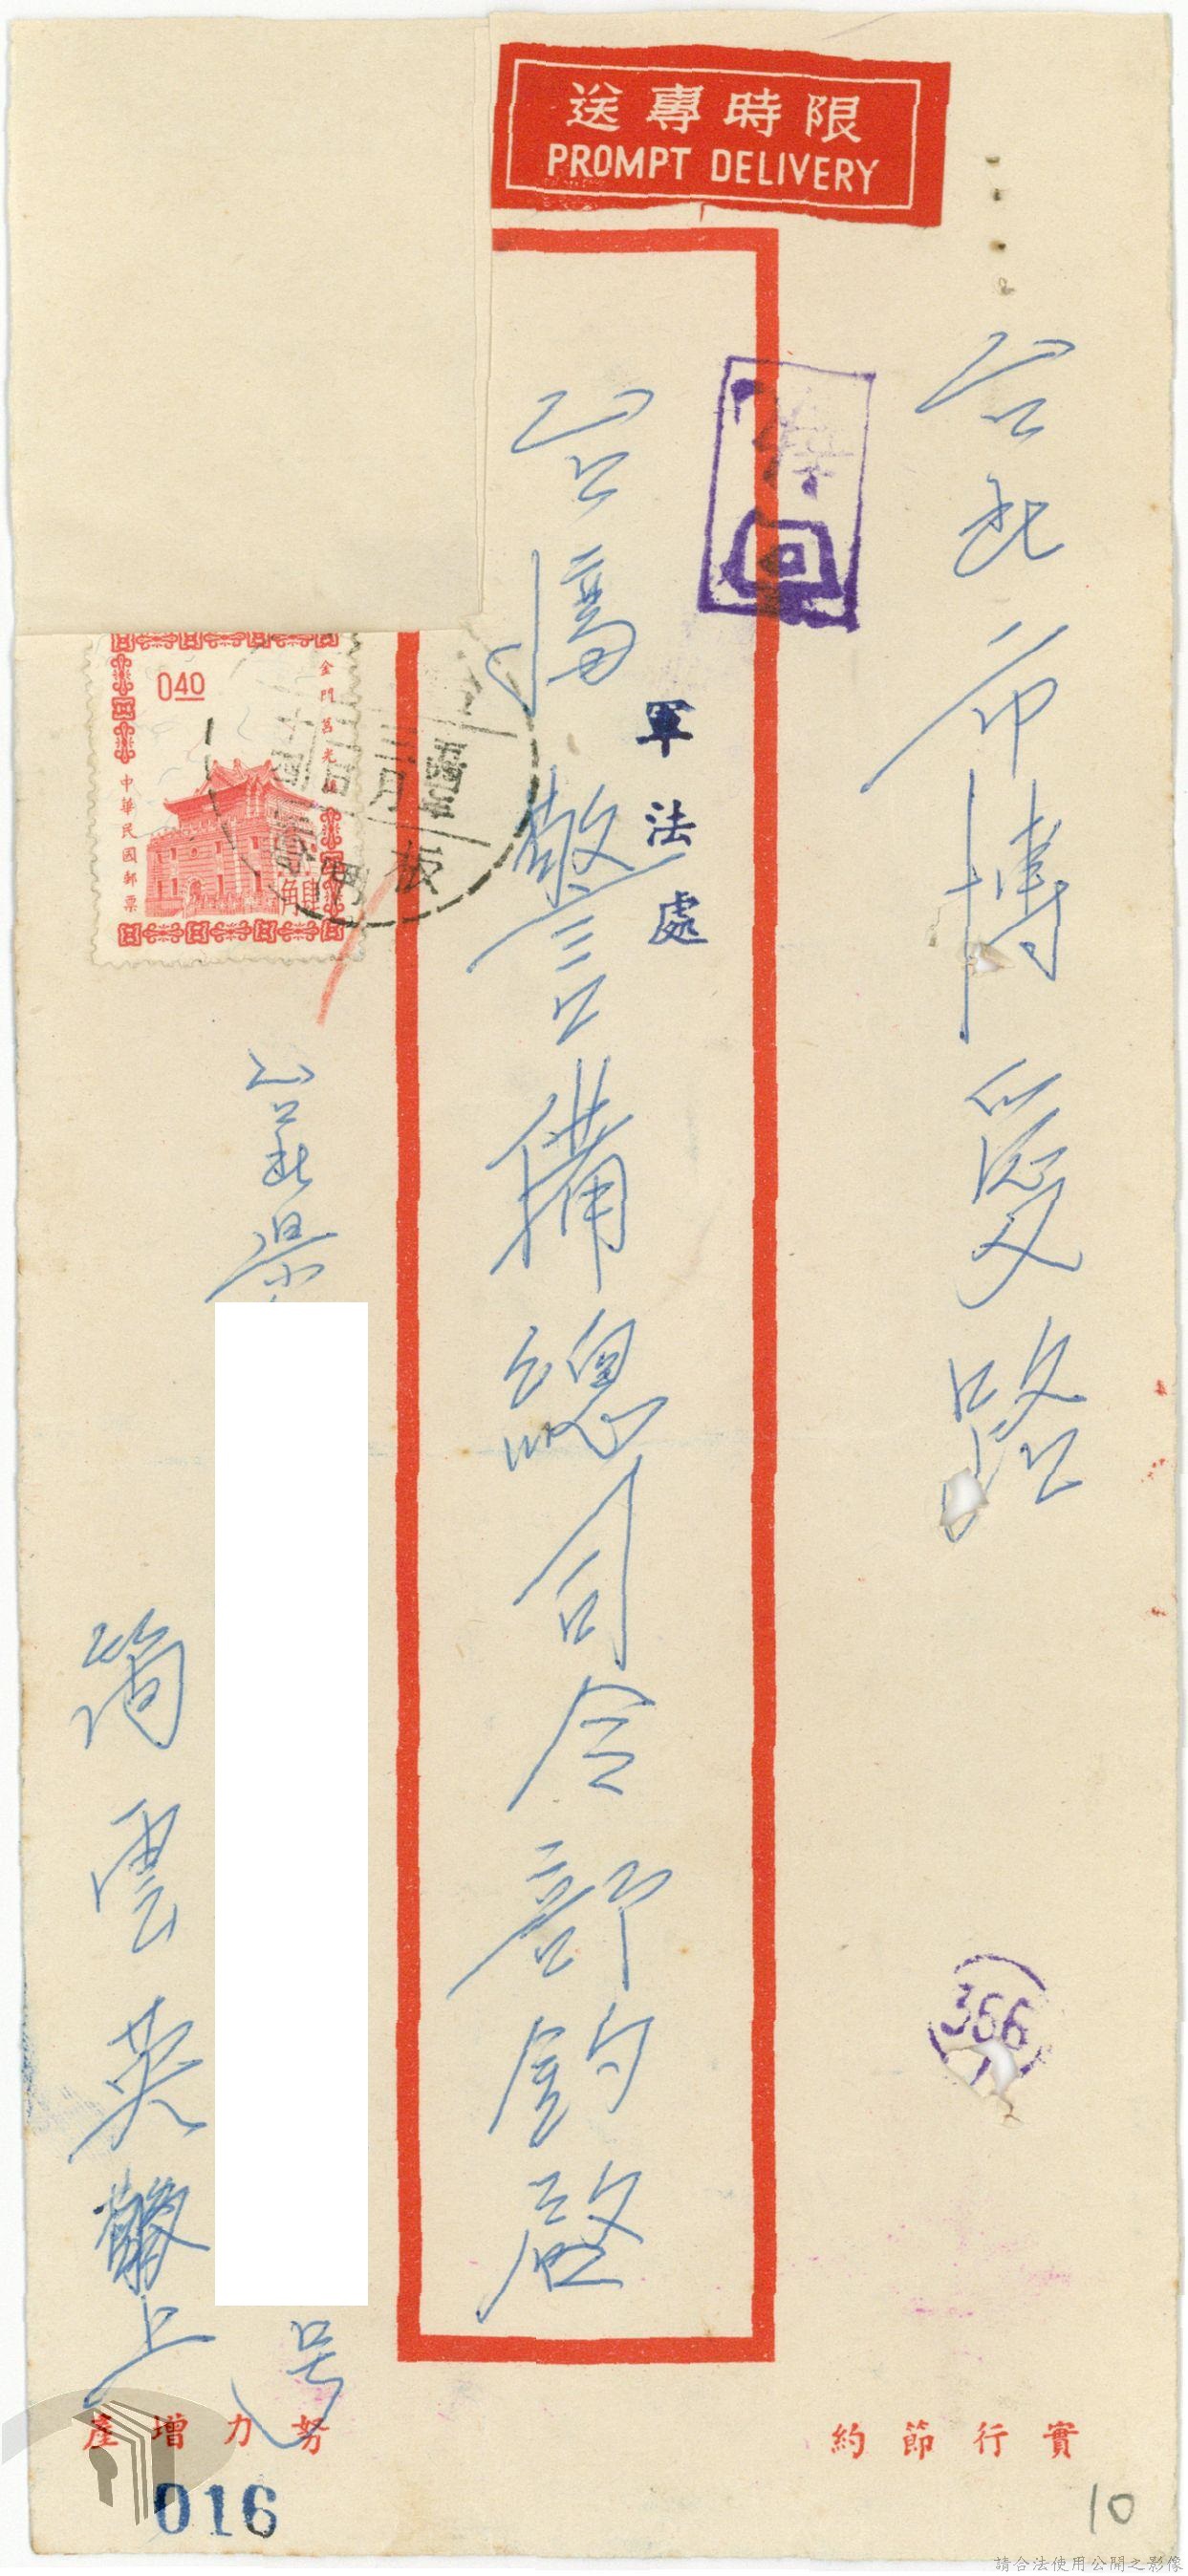 限時專送
PROMPT DELIVERY
台北市博愛路
回
軍法處
台灣警備總司令部鈞啟
金門莒光樓
0.40
中華民國郵票
肆角
板
台北県
号
簡雲英
上
366
實行節約
努力增產
016
10
請合法使用公開之影像